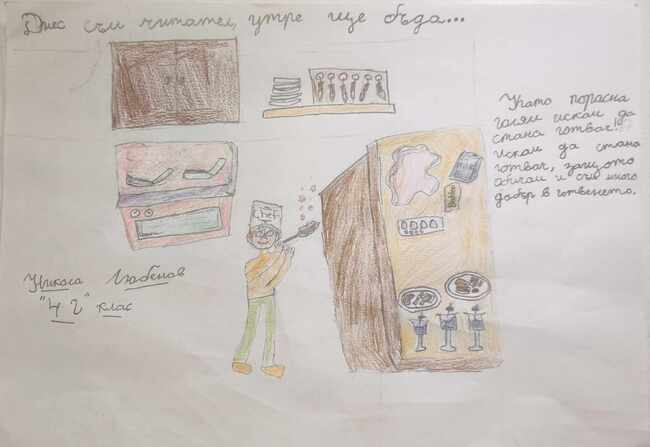 Днес съм читател, утре ще бъда...
Chef
Когато порасна
голям искам да
стана готвач!
Искам да стана
готвач, защото
обичам и съм много
добър в готвенето.
Никола Любенов
"4 г" клас